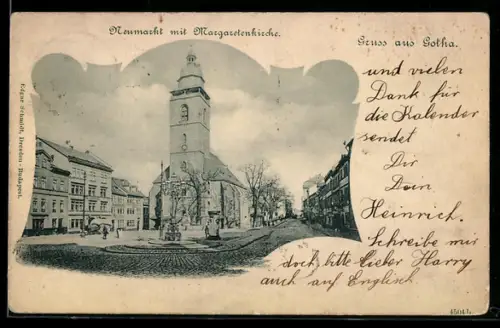 Neumarkt mit Margaretenkirche.
Gruss aus Gotha.
und vielen
Dank für
die Kalender
sendet
Dir
Dein
Heinrich.
Schreibe mir
doch bitte lieber Harry
auch auf Englisch
Edgar Schmidt, Dresden-Budapest.